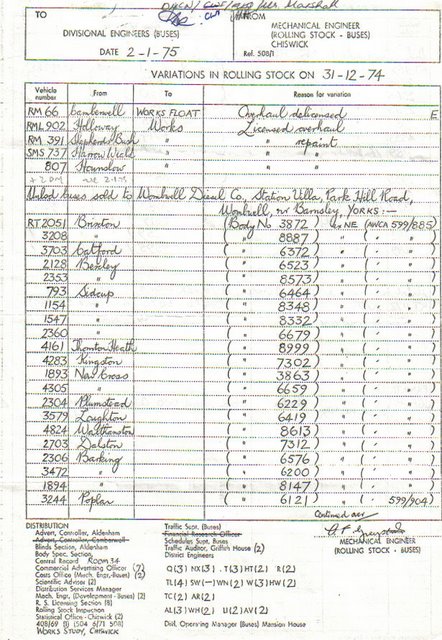 TO
FROM
DIVISIONAL ENGINEERS (BUSES)
MECHANICAL ENGINEER
(ROLLING STOCK - BUSES)
CHISWICK
DATE 2-1-75
Ref. 508/1
VARIATIONS IN ROLLING STOCK ON 31-12-74
Vehicle number From To Reason for variation
RM 66 Camberwell WORKS FLOAT Overhaul delicensed E
RML 902 Holloway Works Licensed overhaul
RM 391 Shepherds Bush " " repaint
SMS 737 Harrow Weald " " "
807 Hounslow " " "
Unlicd buses sold to Wombwell Diesel Co., Station Villa, Park Hill Road,
Wombwell, nr Barnsley, YORKS:—
RT2051 Brixton (Body No 3872) (AWCA 599/885)
3208 " ( " 8887) " ( " " )
3703 Catford ( " 6372) " ( " " )
2128 Bexley ( " 6523) " ( " " )
2353 " ( " 8573) " ( " " )
793 Sidcup ( " 6464) " ( " " )
1154 " ( " 8348) " ( " " )
1547 " ( " 8332) " ( " " )
2360 " ( " 6679) " ( " " )
4161 Thornton Heath ( " 8999) " ( " " )
4283 Kingston ( " 7302) " ( " " )
1893 New Cross ( " 3863) " ( " " )
4305 " ( " 6659) " ( " " )
2304 Plumstead ( " 6229) " ( " " )
3579 Loughton ( " 6419) " ( " " )
4824 Walthamstow ( " 8613) " ( " " )
2703 Dalston ( " 7312) " ( " " )
2306 Barking ( " 6576) " ( " " )
3472 " ( " 6200) " ( " " )
1894 " ( " 8147) " ( " " )
3244 Poplar ( " 6121) " ( " 599/904)
Continued over
MECHANICAL ENGINEER
(ROLLING STOCK - BUSES)
DISTRIBUTION
Advert. Controller, Aldenham
Advert. Controller, Camberwell
Blinds Section, Aldenham
Body Spec. Section,
Central Record ROOM 34
Commercial Advertising Officer (2)
Costs Office (Mech. Engr.-Buses) (2)
Scientific Adviser (2)
Distribution Services Manager
Mech. Engr. (Development - Buses) (2)
R. S. Licensing Section (8)
Rolling Stock Inspection
Statistical Office - Chiswick (2)
408/69 (1) 504 6/71 508)
WORKS STUDY, CHISWICK
Traffic Supt. (Buses)
Financial Research Officer
Schedules Supt. Buses
Traffic Auditor, Griffith House (2)
District Engineers
Q(3) NX(3) T(3) HT(2) R(2)
TL(4) SW(—) WN(2) W(3) HW(2)
TC(2) AR(2)
AL(3) WH(2) U(2) AV(2)
Divl. Operating Manager (Buses) Mansion House